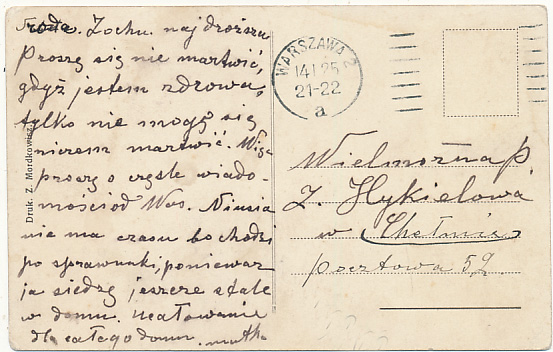 Środa. Zochu. najdroższa
Proszę się nie martwić,
gdyż jestem zdrowa,
tylko nie mogę się
niczem martwić. Więc
proszę o częste wiado-
mości od Was. Niusia
nie ma czasu bo chodzi
po sprawunki, ponieważ
ja siedzę jeszcze stale
w domu. Ucałowanie
dla całego domu. matka
Druk. Z. Mordkowicz
WARSZAWA 2
14 I 25
21-22
a
Wielmożna P.
Z. Hykielowa
w Chełmie
Pocztowa 52